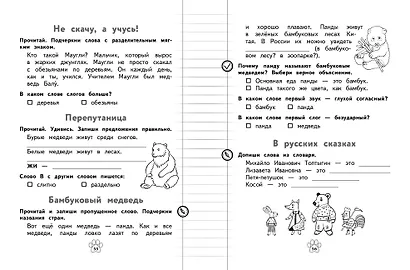 Не скачу, а учусь!
Прочитай. Подчерни слова с разделительным мяг-
ким знаком.
Кто такой Маугли? Мальчик, который вырос
в жарких джунглях. Маугли не просто скакал
с обезьянами по деревьям. Он каждый день,
как и ты, учился. Учителем Маугли был мед-
ведь Балу.
В каком слове слогов больше?
деревья обезьяны
Перепутаница
Прочитай. Удивись. Запиши предложения правильно.
Бурые медведи живут среди снегов.
Белые медведи живут в лесах.
ЖИ —
Слово В с другим словом пишется:
слитно раздельно
Бамбуковый медведь
Прочитай и запиши пропущенное слово. Подчерни
названия стран.
Вот ещё один медведь — панда. Как и все
медведи, панды ловко лазят по деревьям
и хорошо плавают. Панды живут
в зелёных бамбуковых лесах Ки-
тая. В России их можно увидеть
(в бамбуко-
вом лесу? в зоопарке?).
Почему панду называют бамбуковым
медведем? Выбери верное объяснение.
Основная еда панды — это бамбук.
Панда такого же цвета, как бамбук.
В каком слове первый звук — глухой согласный?
бамбук панда
В каком слове первый слог — безударный?
панда медведь
В русских сказках
Допиши слова из словаря.
Михайло Иванович Топтыгин — это
Лизавета Ивановна — это
Петя-петушок — это
Косой — это